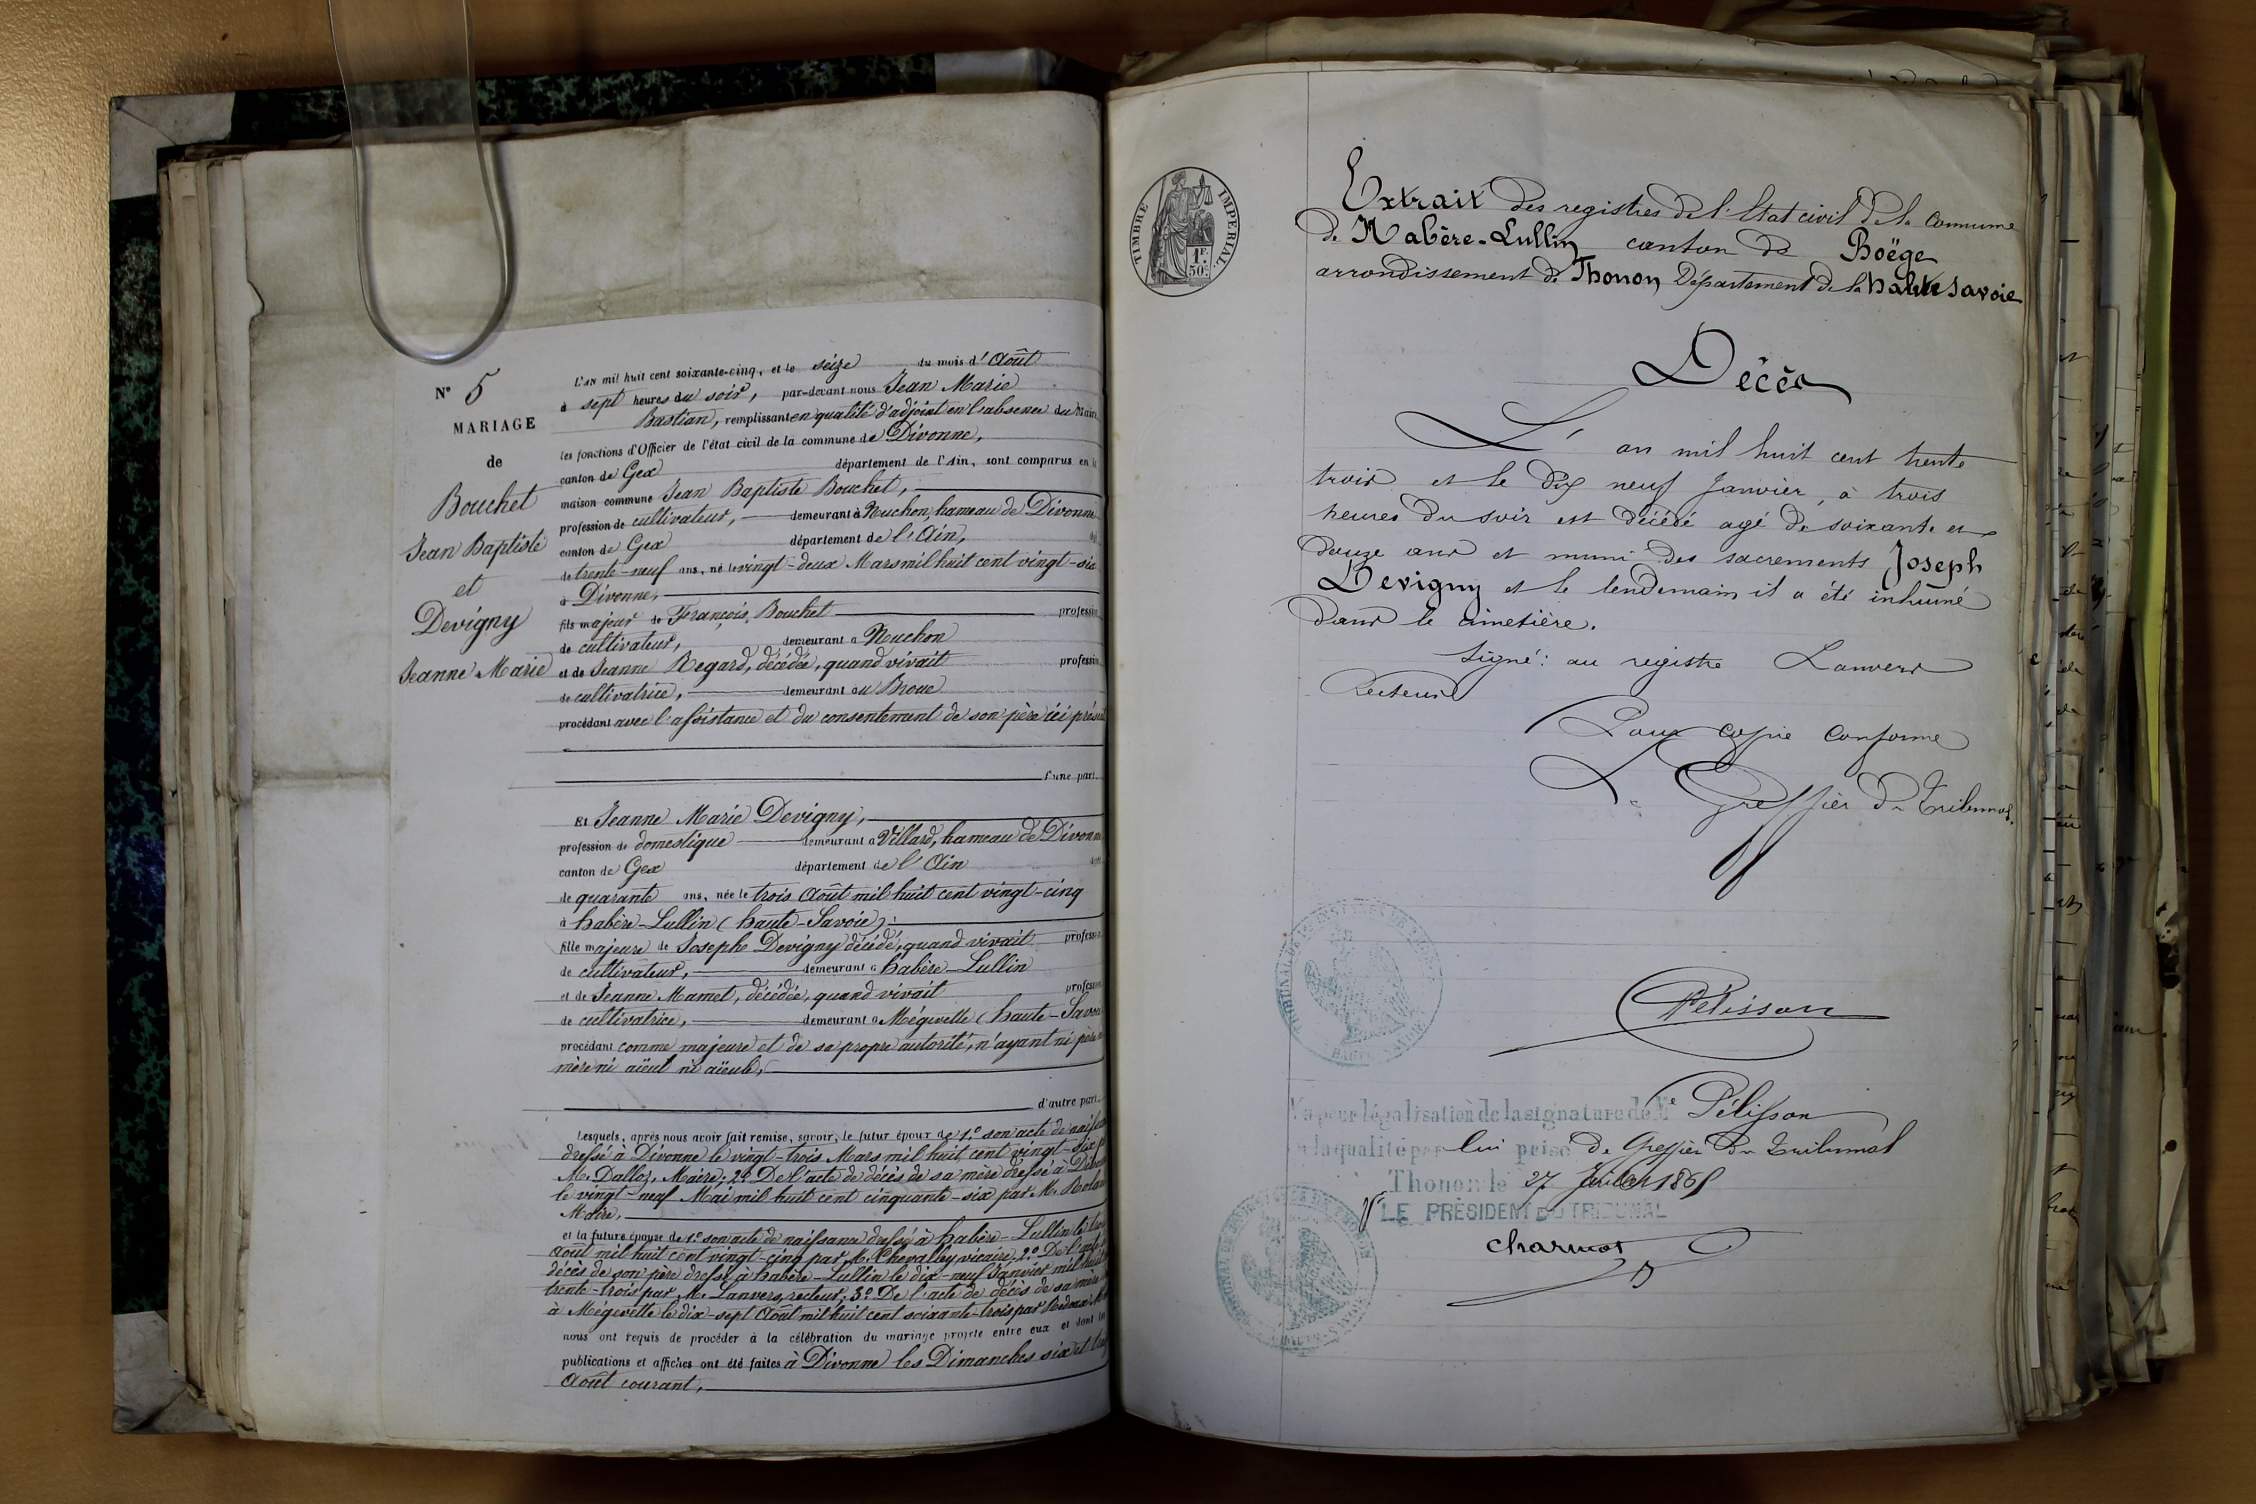 N° 5
MARIAGE
de
Bouchet
Jean Baptiste
et
Devigny
Jeanne Marie
L'AN mil huit cent soixante-cinq, et le seize du mois d'Août
à sept heures du soir, par-devant nous Jean Marie
Bastian, remplissant en qualité d'adjoint en l'absence du Maire
les fonctions d'Officier de l'état civil de la commune de Divonne,
canton de Gex département de l'Ain, sont comparus en la
maison commune Jean Baptiste Bouchet,
profession de cultivateur, demeurant à Ruchon, hameau de Divonne
canton de Gex département de l'Ain,
de trente-neuf ans, né le vingt-deux Mars mil huit cent vingt-six
à Divonne,
fils majeur de François Bouchet profession
de cultivateur, demeurant à Ruchon
et de Jeanne Regard, décédée, quand vivait profession
de cultivatrice, demeurant au Broue
procédant avec l'assistance et du consentement de son père ici présent
d'une part.
Et Jeanne Marie Devigny,
profession de domestique demeurant à Villard, hameau de Divonne
canton de Gex département de l'Ain
de quarante ans, née le trois Août mil huit cent vingt-cinq
à habère-Lullin (haute-Savoie);
fille majeure de Joseph Devigny décédé, quand vivait profession
de cultivateur, demeurant à habère-Lullin
et de Jeanne Mamet, décédée, quand vivait profession
de cultivatrice, demeurant à Mégevette (haute-Savoie
procédant comme majeure et de sa propre autorité, n'ayant ni père ni
mère ni aïeul ni aïeule,
d'autre part.
Lesquels, après nous avoir fait remise, savoir, le futur époux de 1° son acte de naissance
dressé à Divonne le vingt-trois Mars mil huit cent vingt-six par
M. Dalloz, Maire; 2° De l'acte de décès de sa mère dressé à Divonne
le vingt-neuf Mai mil huit cent cinquante-six par M.
Maire,
et la future épouse de 1° son acte de naissance dressé à habère-Lullin le trois
Août mil huit cent vingt-cinq par M. Chevalley vicaire; 2° De l'acte de
décès de son père dressé à habère-Lullin le dix-neuf Janvier mil huit cent
trente-trois par M. Lanvers, recteur; 3° De l'acte de décès de sa mère
à Mégevette le dix-sept Août mil huit cent soixante-trois par
nous ont requis de procéder à la célébration du mariage projeté entre eux et dont les
publications et affiches ont été faites à Divonne les Dimanches six et treize
Août courant,
TIMBRE IMPERIAL
1F. 50c.
Extrait des registres de l'Etat civil de la commune
de Habère-Lullin canton de Boëge
arrondissement de Thonon Département de la haute Savoie
Décès
L'an mil huit cent trente
trois et le dix neuf Janvier, à trois
heures du soir est décédé agé de soixante et
douze ans et muni des sacrements Joseph
Devigny et le lendemain il a été inhumé
dans le cimetière.
Signé: au registre Lanvers
Recteur
Pour copie conforme
Le Greffier du Tribunal.
Pélisson
Vu pour légalisation de la signature de Me Pélisson
en la qualité par lui prise de Greffier du Tribunal
Thonon le 27 Juillet 1865
Pr LE PRÉSIDENT DU TRIBUNAL
charmot